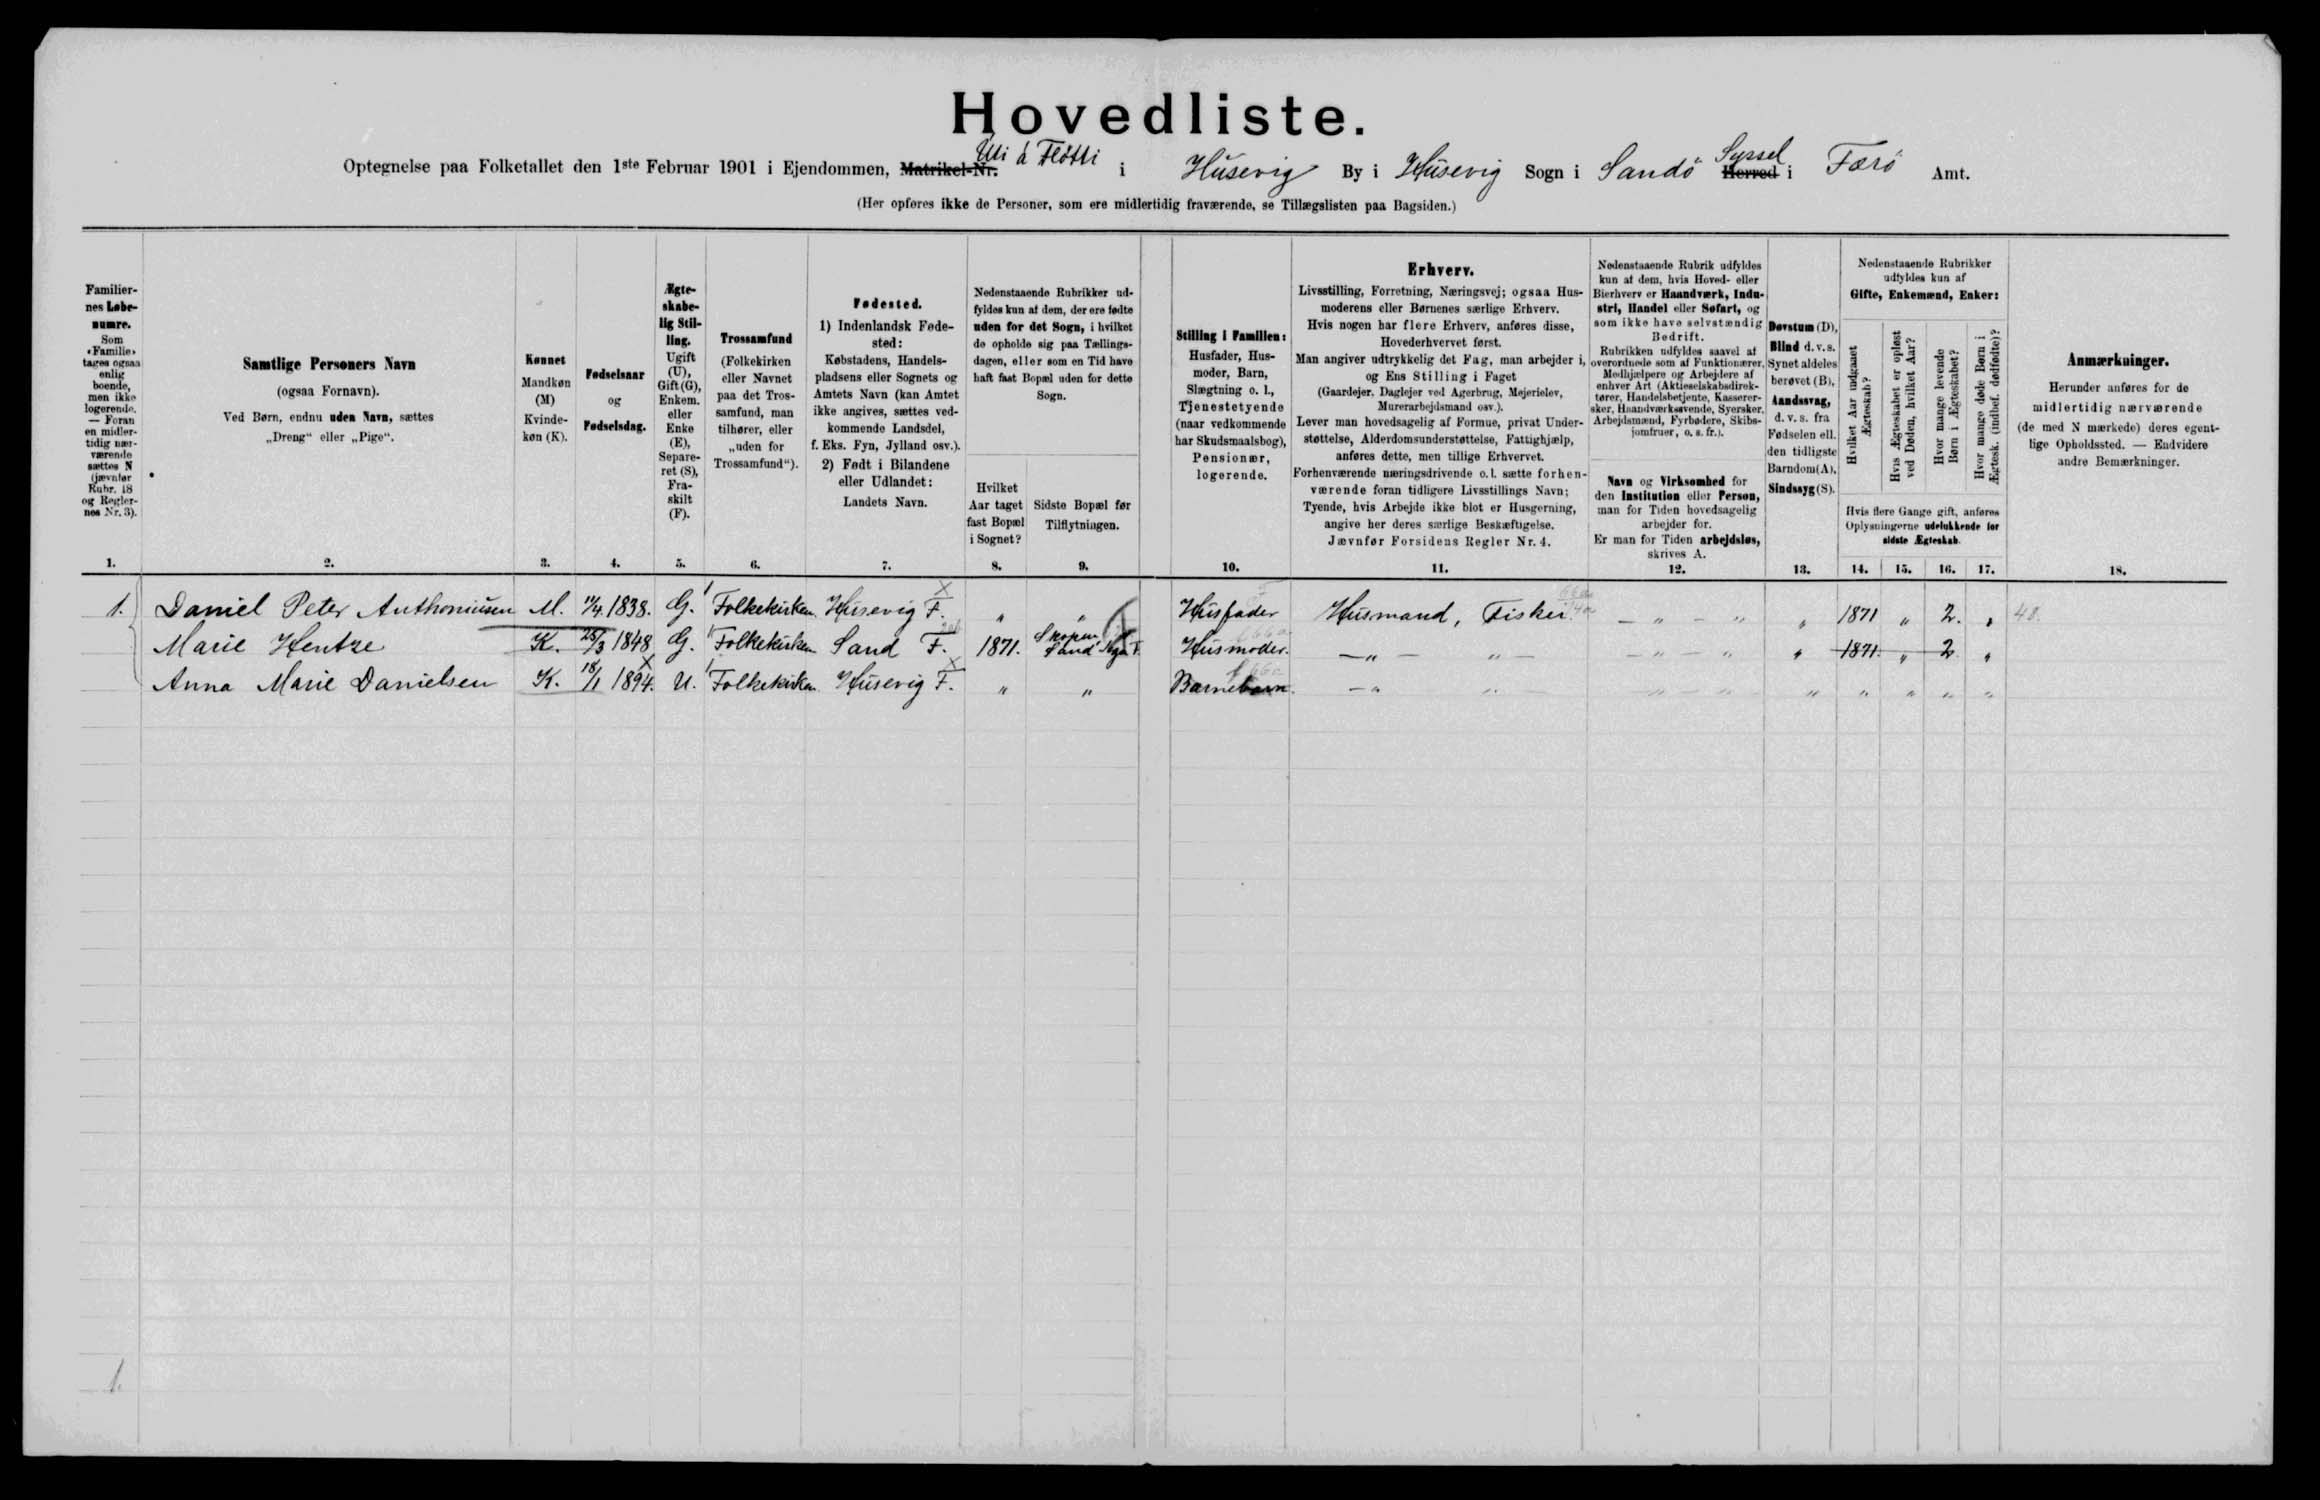 Hovedliste.
Uti á Fløtti Syssel
Optegnelse paa Folketallet den 1ste Februar 1901 i Ejendommen, Matrikel-Nr. i Húsevig By i Húsevig Sogn i Sandö Herred i Færö Amt.
(Her opføres ikke de Personer, som ere midlertidig fraværende, se Tillægslisten paa Bagsiden.)
Familier-
nes Løbe-
numre.
Som
»Familie»
tages ogsaa
enlig
boende,
men ikke
logerende.
— Foran
en midler-
tidig nær-
værende
sættes N
(jævnfør
Rubr. 18
og Regler-
nes Nr. 3).
1.
Samtlige Personers Navn
(ogsaa Fornavn).
Ved Børn, endnu uden Navn, sættes
„Dreng“ eller „Pige“.
2.
Kønnet
Mandkøn
(M)
Kvinde-
køn (K).
3.
Fødselsaar
og
Fødselsdag.
4.
Ægte-
skabe-
lig Stil-
ling.
Ugift
(U),
Gift (G),
Enkem.
eller
Enke
(E),
Separe-
ret (S),
Fra-
skilt
(F).
5.
Trossamfund
(Folkekirken
eller Navnet
paa det Tros-
samfund, man
tilhører, eller
„uden for
Trossamfund“).
6.
Fødested.
1) Indenlandsk Føde-
sted:
Købstadens, Handels-
pladsens eller Sognets og
Amtets Navn (kan Amtet
ikke angives, sættes ved-
kommende Landsdel,
f. Eks. Fyn, Jylland osv.).
2) Født i Bilandene
eller Udlandet:
Landets Navn.
7.
Nedenstaaende Rubrikker ud-
fyldes kun af dem, der ere fødte
uden for det Sogn, i hvilket
de opholde sig paa Tællings-
dagen, eller som en Tid have
haft fast Bopæl uden for dette
Sogn.
Hvilket
Aar taget
fast Bopæl
i Sognet?
8.
Sidste Bopæl før
Tilflytningen.
9.
Stilling i Familien:
Husfader, Hus-
moder, Barn,
Slægtning o. l.,
Tjenestetyende
(naar vedkommende
har Skudsmaalsbog),
Pensionær,
logerende.
10.
Erhverv.
Livsstilling, Forretning, Næringsvej; ogsaa Hus-
moderens eller Børnenes særlige Erhverv.
Hvis nogen har flere Erhverv, anføres disse,
Hovederhvervet først.
Man angiver udtrykkelig det Fag, man arbejder i,
og Ens Stilling i Faget
(Gaardejer, Daglejer ved Agerbrug, Mejerielev,
Murerarbejdsmand osv.).
Lever man hovedsagelig af Formue, privat Under-
støttelse, Alderdomsunderstøttelse, Fattighjælp,
anføres dette, men tillige Erhvervet.
Forhenværende næringsdrivende o. l. sætte forhen-
værende foran tidligere Livsstillings Navn;
Tyende, hvis Arbejde ikke blot er Husgerning,
angive her deres særlige Beskæftigelse.
Jævnfør Forsidens Regler Nr. 4.
11.
Nedenstaaende Rubrik udfyldes
kun af dem, hvis Hoved- eller
Bierhverv er Haandværk, Indu-
stri, Handel eller Søfart, og
som ikke have selvstændig
Bedrift.
Rubrikken udfyldes saavel af
overordnede som af Funktionærer,
Medhjælpere og Arbejdere af
enhver Art (Aktieselskabsdirek-
tører, Handelsbetjente, Kasserer-
sker, Haandværkssvende, Syersker,
Arbejdsmænd, Fyrbødere, Skibs-
jomfruer, o. s. fr.).
Navn og Virksomhed for
den Institution eller Person,
man for Tiden hovedsagelig
arbejder for.
Er man for Tiden arbejdsløs,
skrives A.
12.
Døvstum (D),
Blind d. v. s.
Synet aldeles
berøvet (B),
Aandssvag,
d. v. s. fra
Fødselen ell.
den tidligste
Barndom (A),
Sindssyg (S).
13.
Nedenstaaende Rubrikker
udfyldes kun af
Gifte, Enkemænd, Enker:
Hvilket Aar indgaaet
Ægteskab?
Hvis Ægteskabet er opløst
ved Døden, hvilket Aar?
Hvor mange levende
Børn i Ægteskabet?
Hvor mange døde Børn i
Ægtesk. (indbef. dødfødte)?
Hvis flere Gange gift, anføres
Oplysningerne udelukkende for
sidste Ægteskab.
14. 15. 16. 17.
Anmærkninger.
Herunder anføres for de
midlertidig nærværende
(de med N mærkede) deres egent-
lige Opholdssted. — Endvidere
andre Bemærkninger.
18.
1. Daniel Peter Anthoniúsen M. 11/4 1838. G. Folkekirken Húsevig F. „ „ Húsfader Húsmand, Fisker. — „ — „ „ 1871 „ 2. „ 48.
Marie Hentze K. 25/3 1848 G. Folkekirken Sand F. 1871. Skopun Sand Sogn F. Húsmoder. — „ — „ — — „ — „ „ 1871. „ 2 „
Anna Marie Danielsen K. 18/1 1894. U. Folkekirken Húsevig F. „ „ Barnebarn. — „ „ — „ — „ „ „ „ „ „
1.